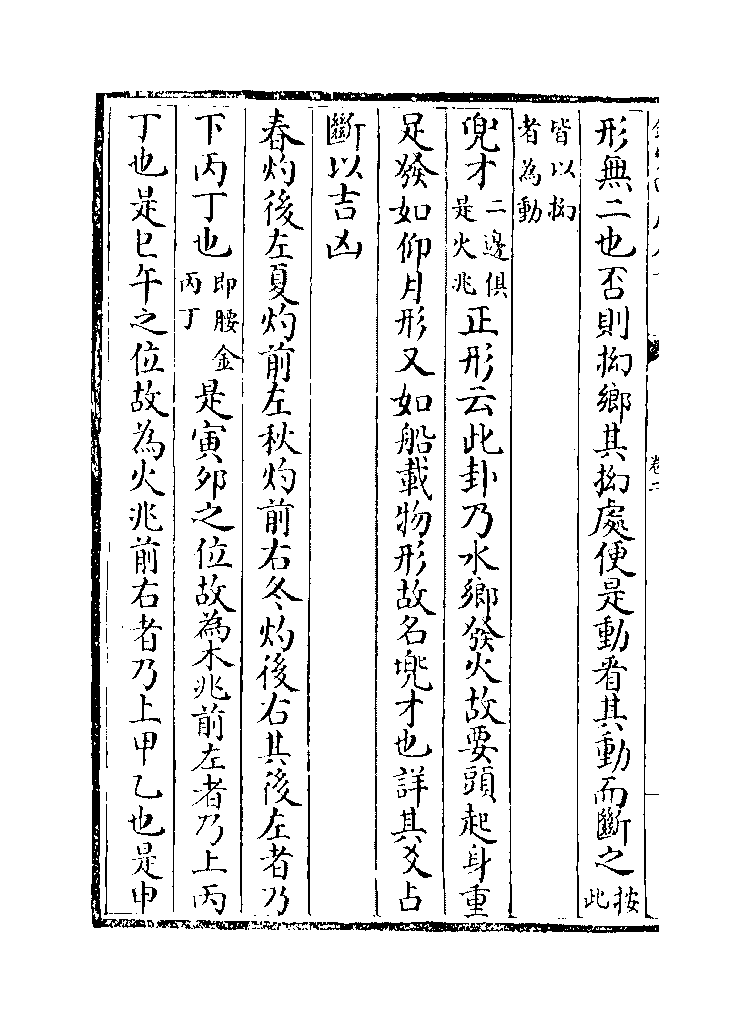 形無二也否則拗鄉其拗處便是動看其動而斷之按此
皆以拗者為動
兜才二邊俱是火兆正形云此卦乃水鄉發火故要頭起身重
足發如仰月形又如船載物形故名兜才也詳其爻占
斷以吉凶
春灼後左夏灼前左秋灼前右冬灼後右其後左者乃
下丙丁也即腰金丙丁是寅卯之位故為木兆前左者乃上丙
丁也是巳午之位故為火兆前右者乃上甲乙也是申
卷二